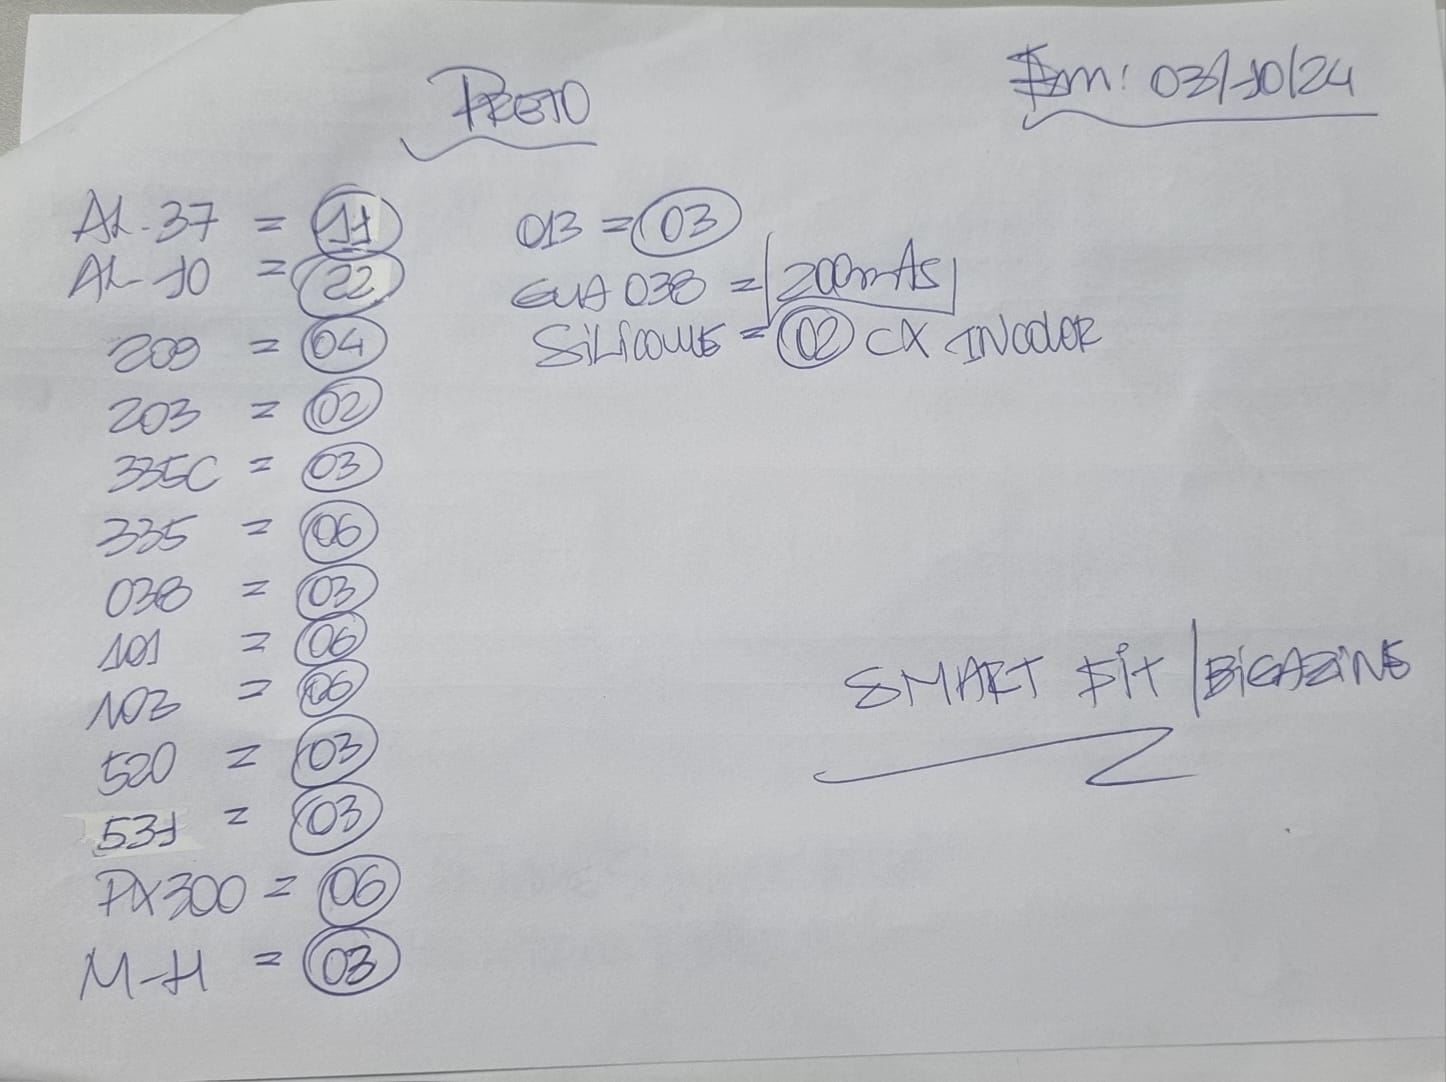 PRETO
Em: 03/10/24
AL-37 = 11
AL-10 = 22
209 = 04
203 = 02
335C = 03
335 = 06
038 = 03
101 = 06
103 = 06
520 = 03
531 = 03
PX300 = 06
M-H = 03
013 = 03
GUA 038 = 200mts
SiLiCONE = 02 CX INCOLOR
SMART Fit / BiGAZiNE